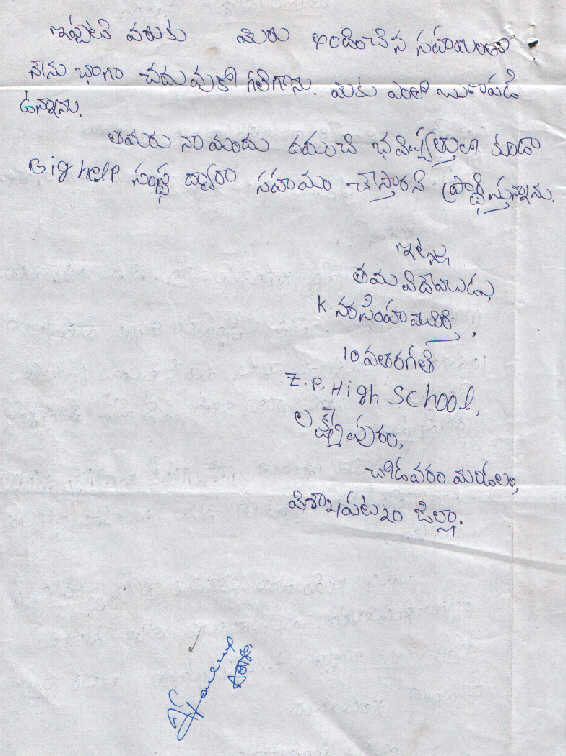 ఇప్పటి వరకు మీరు అందించిన సహాయంతో
నేను బాగా చదువుకో గలిగాను. మీకు ఎంతో ఋణపడి
ఉన్నాను.
తమరు నా ముందు భవిష్యత్తులో కూడా
Big help సంస్థ ద్వారా సహాయం చేస్తారని ప్రార్థిస్తున్నాను.
ఇట్లు,
తమ విదేయుడు,
K నరసింహమూర్తి.
10వతరగతి
Z.P. High School,
లక్ష్మీపురం,
చీడివరం మండలం,
విశాఖపట్టణం జిల్లా.